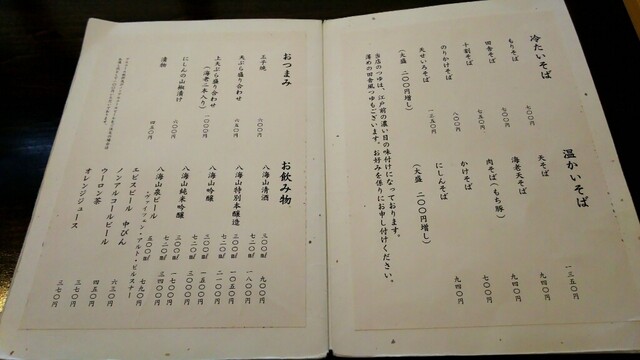 冷たいそば
もりそば 七〇〇円
田舎そば 七五〇円
十割そば 八〇〇円
のりかけそば
天せいろそば 一三五〇円
(大盛 二〇〇円増し)
温かいそば
天そば 一三五〇円
海老天そば 九四〇円
肉そば(もち豚) 九四〇円
かけそば 七〇〇円
にしんそば 九四〇円
(大盛 二〇〇円増し)
当店のつゆは、江戸前の濃い目の味付けになっております。
薄めの田舎風つゆもございます。お好みを係りにお申し付けください。
おつまみ
玉子焼 六〇〇円
天ぷら盛り合わせ 六五〇円
上天ぷら盛り合わせ
(海老二本入り) 一〇〇〇円
にしんの山椒漬け 六〇〇円
漬物 四五〇円
お飲み物
八海山清酒 三〇〇㎖ 九〇〇円
七二〇㎖ 一八〇〇円
八海山特別本醸造 三〇〇㎖ 一〇五〇円
七二〇㎖ 二一〇〇円
八海山吟醸 三〇〇㎖ 一五〇〇円
七二〇㎖ 三〇〇〇円
八海山純米吟醸 三〇〇㎖ 一七〇〇円
七二〇㎖ 三四〇〇円
八海山泉ビール 五〇〇㎖ 七九〇円
・ヴァイツェン・アルト・ピルスナー
エビスビール 中びん 六三〇円
ノンアルコールビール 四五〇円
ウーロン茶 三七〇円
オレンジジュース 三七〇円